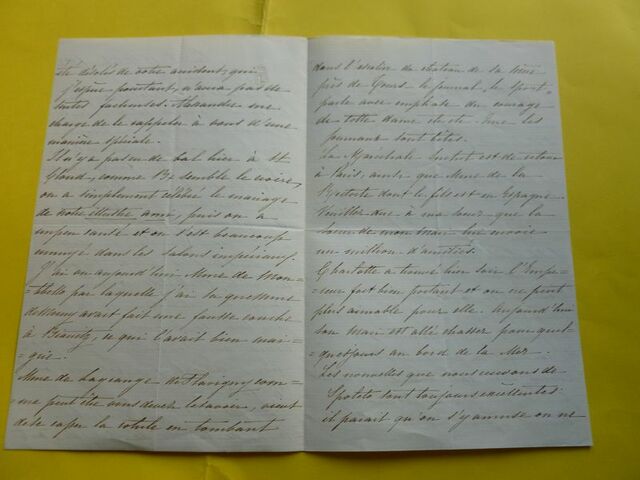 été désolés de votre accident, qui
j'espère pourtant, n'aura pas de
suites fâcheuses. Alexandre me
charge de le rappeler à vous d'une
manière spéciale.
Il n'y a pas eu de bal hier à St
Cloud, comme semble le croire,
on a simplement célébré le mariage
de votre illustre ami, puis on a
un peu sauté et on s'est beaucoup
ennuyé dans les salons impériaux.
J'ai vu aujourd'hui Mme de Mon-
-tebello par laquelle j'ai su que Mme
de Morny avait fait une fausse couche
à Biarritz, ce qui l'avait bien mai-
-gri.
Mme de Lagrange de Flavigny com-
-me peut être vous devez le savoir, vient
de se casser la rotule en tombant
dans l'escalier du château de la
près de Tours le journal, le Sport,
parle avec emphase du courage
de cette dame etc etc. Que les
journaux sont bêtes.
La Maréchale est de retour
à Paris, ainsi que Mme de la
dont le fils est en Espagne
Veuillez dire à ma sœur que la
sœur de mon mari lui envoie
un million d'amitiés.
Charlotte a trouvé hier soir l'Empe-
-reur fort bien portant et on ne peut
plus aimable pour elle. Aujourd'hui
son mari est allé chasser pour quel-
-ques jours au bord de la Mer.
Les nouvelles que nous avons de
Spolète sont toujours excellentes
il paraît qu'on s'y amuse on ne